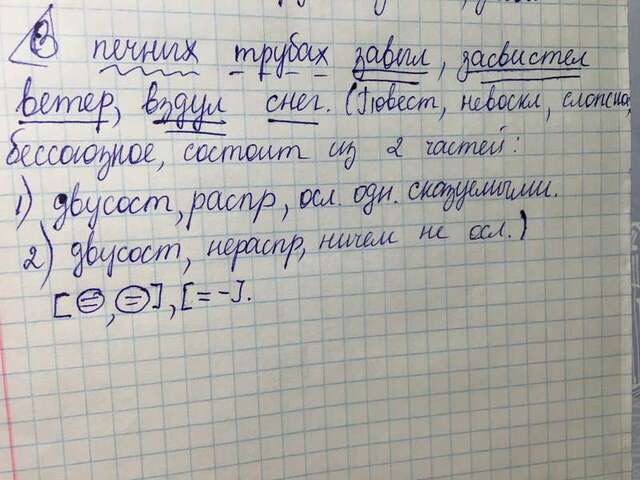 В печных трубах завыл, засвистел
ветер, вздул снег. (Повест, невоскл, сложное,
бессоюзное, состоит из 2 частей:
1) двусост, распр, осл. одн. сказуемыми.
2) двусост, нераспр, ничем не осл.)
[⊜, ⊜], [= -].